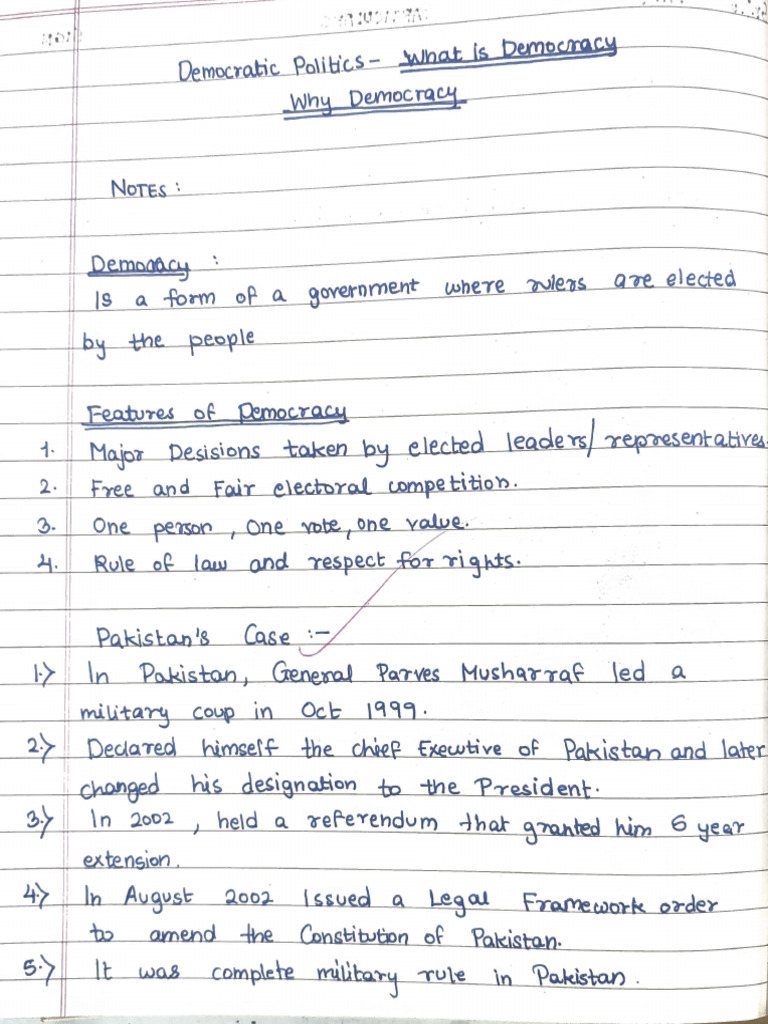 Democratic Politics - What is Democracy
Why Democracy
NOTES :
Democracy :
Is a form of a government where rulers are elected
by the people
Features of Democracy
1. Major Desisions taken by elected leaders/representatives.
2. Free and Fair electoral competition.
3. One person, One vote, one value.
4. Rule of law and respect for rights.
Pakistan's Case :-
1.) In Pakistan, General Parves Musharraf led a
military coup in Oct 1999.
2.) Declared himself the chief Executive of Pakistan and later
changed his designation to the President.
3.) In 2002, held a referendum that granted him 6 year
extension.
4.) In August 2002 Issued a Legal Framework order
to amend the Constitution of Pakistan.
5.) It was complete military rule in Pakistan.